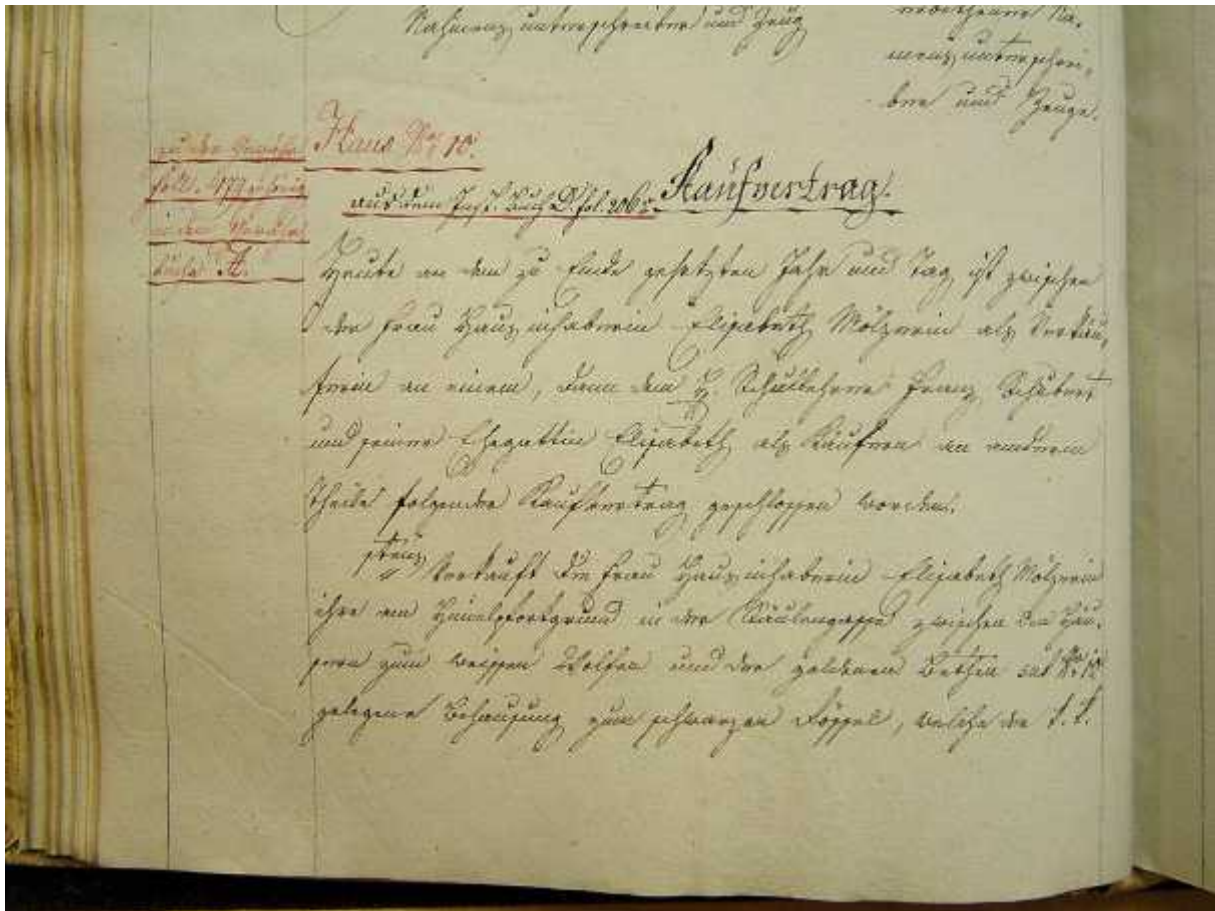 Nahmensunterschreiber und Zeug
unterschrei-
ber und Zeuge.
zu der Gewähr
Haus Nro 10.
foll. 177
aus dem Buch D. fol. 206 Kaufvertrag.
in dem Gewähr
buche A.
Heute an dem zu Ende gesetzten Jahr und Tag ist zwischen
der Frau Hausinhaberin Elisabeth Mölznerin als Verkäu-
ferin an einem, dann dem H. Schullehrer Franz Schubert
und seiner Ehegattin Elisabeth als Käufern an anderem
Theile folgender Kaufvertrag geschlossen worden.
Verkauft die Frau Hausinhaberin Elisabeth Mölznerin
ihre am Himelpfortgrund in der Säulengasse zwischen den Häu-
sern zum weissen Wolfen und der goldenen sub Nro 10
gelegene Behausung zum schwarzen Rössel, welche der t. t.